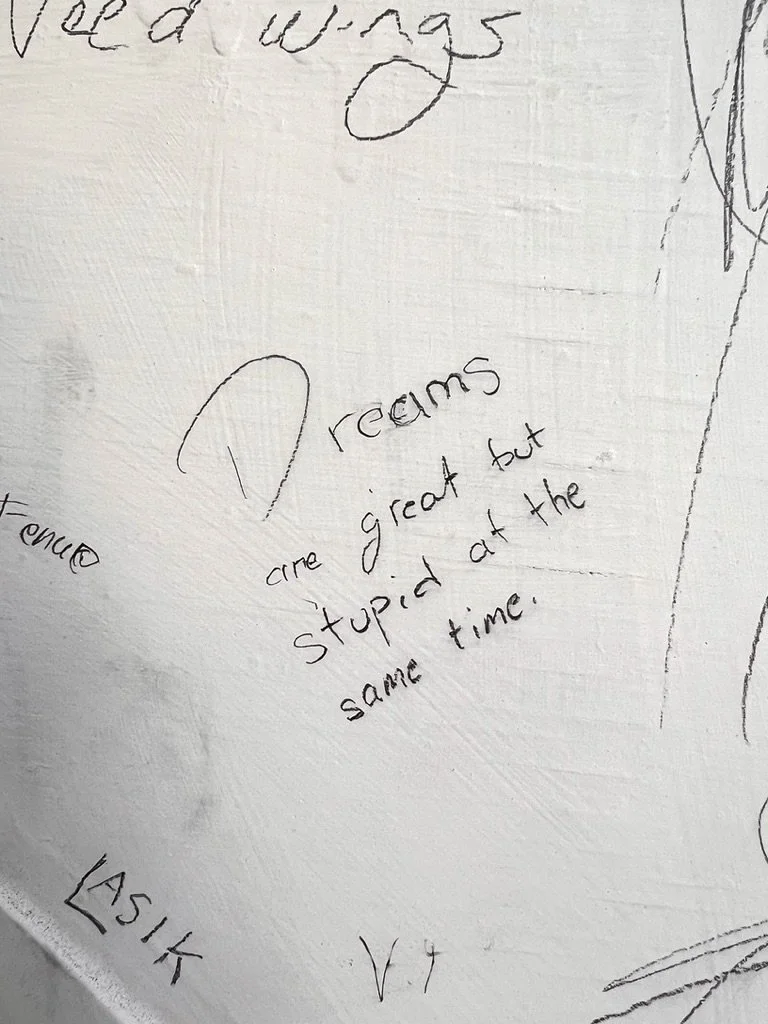 wings
Dreams
are great but
stupid at the
same time.
LASIK